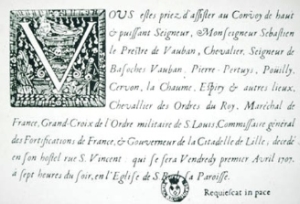 VOUS estes priez d'assister au Convoy de haut
& puissant Seigneur, Monseigneur Sebastien
le Prestre de Vauban, Chevalier, Seigneur de
Basoches Vauban, Pierre-Pertuys, Pouilly,
Cervon, la Chaume, Espiry & autres lieux,
Chevallier des Ordres du Roy, Maréchal de
France, Grand-Croix de l'Ordre militaire de S. Louis, Commissaire général
des Fortifications de France, & Gouverneur de la Citadelle de Lille, decedé
en son hostel rue S. Vincent qui se fera Vendredy premier Avril 1707.
à sept heures du soir, en l'Eglise de S. sa Paroisse.
Requiescat in pace